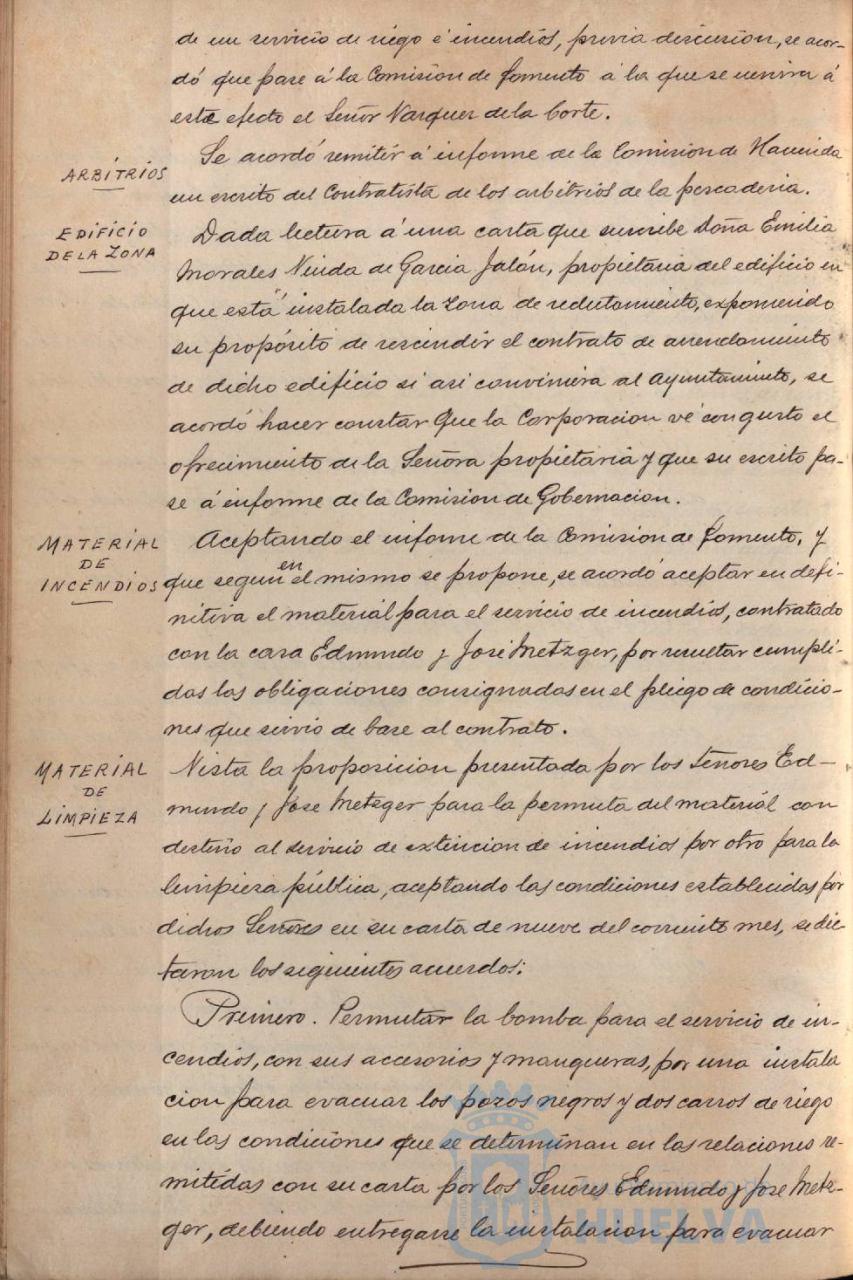 de un servicio de riego é incendios, previa discusion, se acor-
dó que pase á la Comision de fomento á la que se unirá á
este efecto el Señor Vazquez de la Corte.
ARBÍTRIOS
Se acordó remitir á informe de la Comision de Hacienda
un escrito del Contratista de los arbitrios de la pescaderia.
EDIFICIO
DE LA ZONA
Dada lectura á una carta que suscribe Doña Emilia
Morales Viuda de Garcia Jalón, propietaria del edificio en
que está instalada la zona de reclutamiento, exponiendo
su propósito de rescindir el contrato de arrendamiento
de dicho edificio si asi conviniera al Ayuntamiento, se
acordó hacer constar que la Corporacion vé con gusto el
ofrecimiento de la Señora propietaria y que su escrito pa-
se á informe de la Comision de Gobernacion.
MATERIAL
DE
INCENDIOS
Aceptando el informe de la Comision de Fomento, y
que segun en el mismo se propone, se acordó aceptar en defi-
nitiva el material para el servicio de incendios, contratado
con la casa Edmundo y José Metzger, por resultar cumpli-
das las obligaciones consignadas en el pliego de condicio-
nes que sirvió de base al contrato.
MATERIAL
DE
LIMPIEZA
Vista la proposicion presentada por los Señores Ed-
mundo y Jose Metzger para la permuta del material con
destino al servicio de extincion de incendios por otro para la
limpieza pública, aceptando las condiciones establecidas por
dichos Señores en su carta de nueve del corriente mes, se dic-
taron los siguientes acuerdos:
Primero. Permutar la bomba para el servicio de in-
cendios, con sus accesorios y mangueras, por una instala
cion para evacuar los pozos negros y dos carros de riego
en las condiciones que se determinan en las relaciones re-
mitidas con su carta por los Señores Edmundo y Jose Metz-
ger, debiendo entregarse la instalacion para evacuar
HUELVA